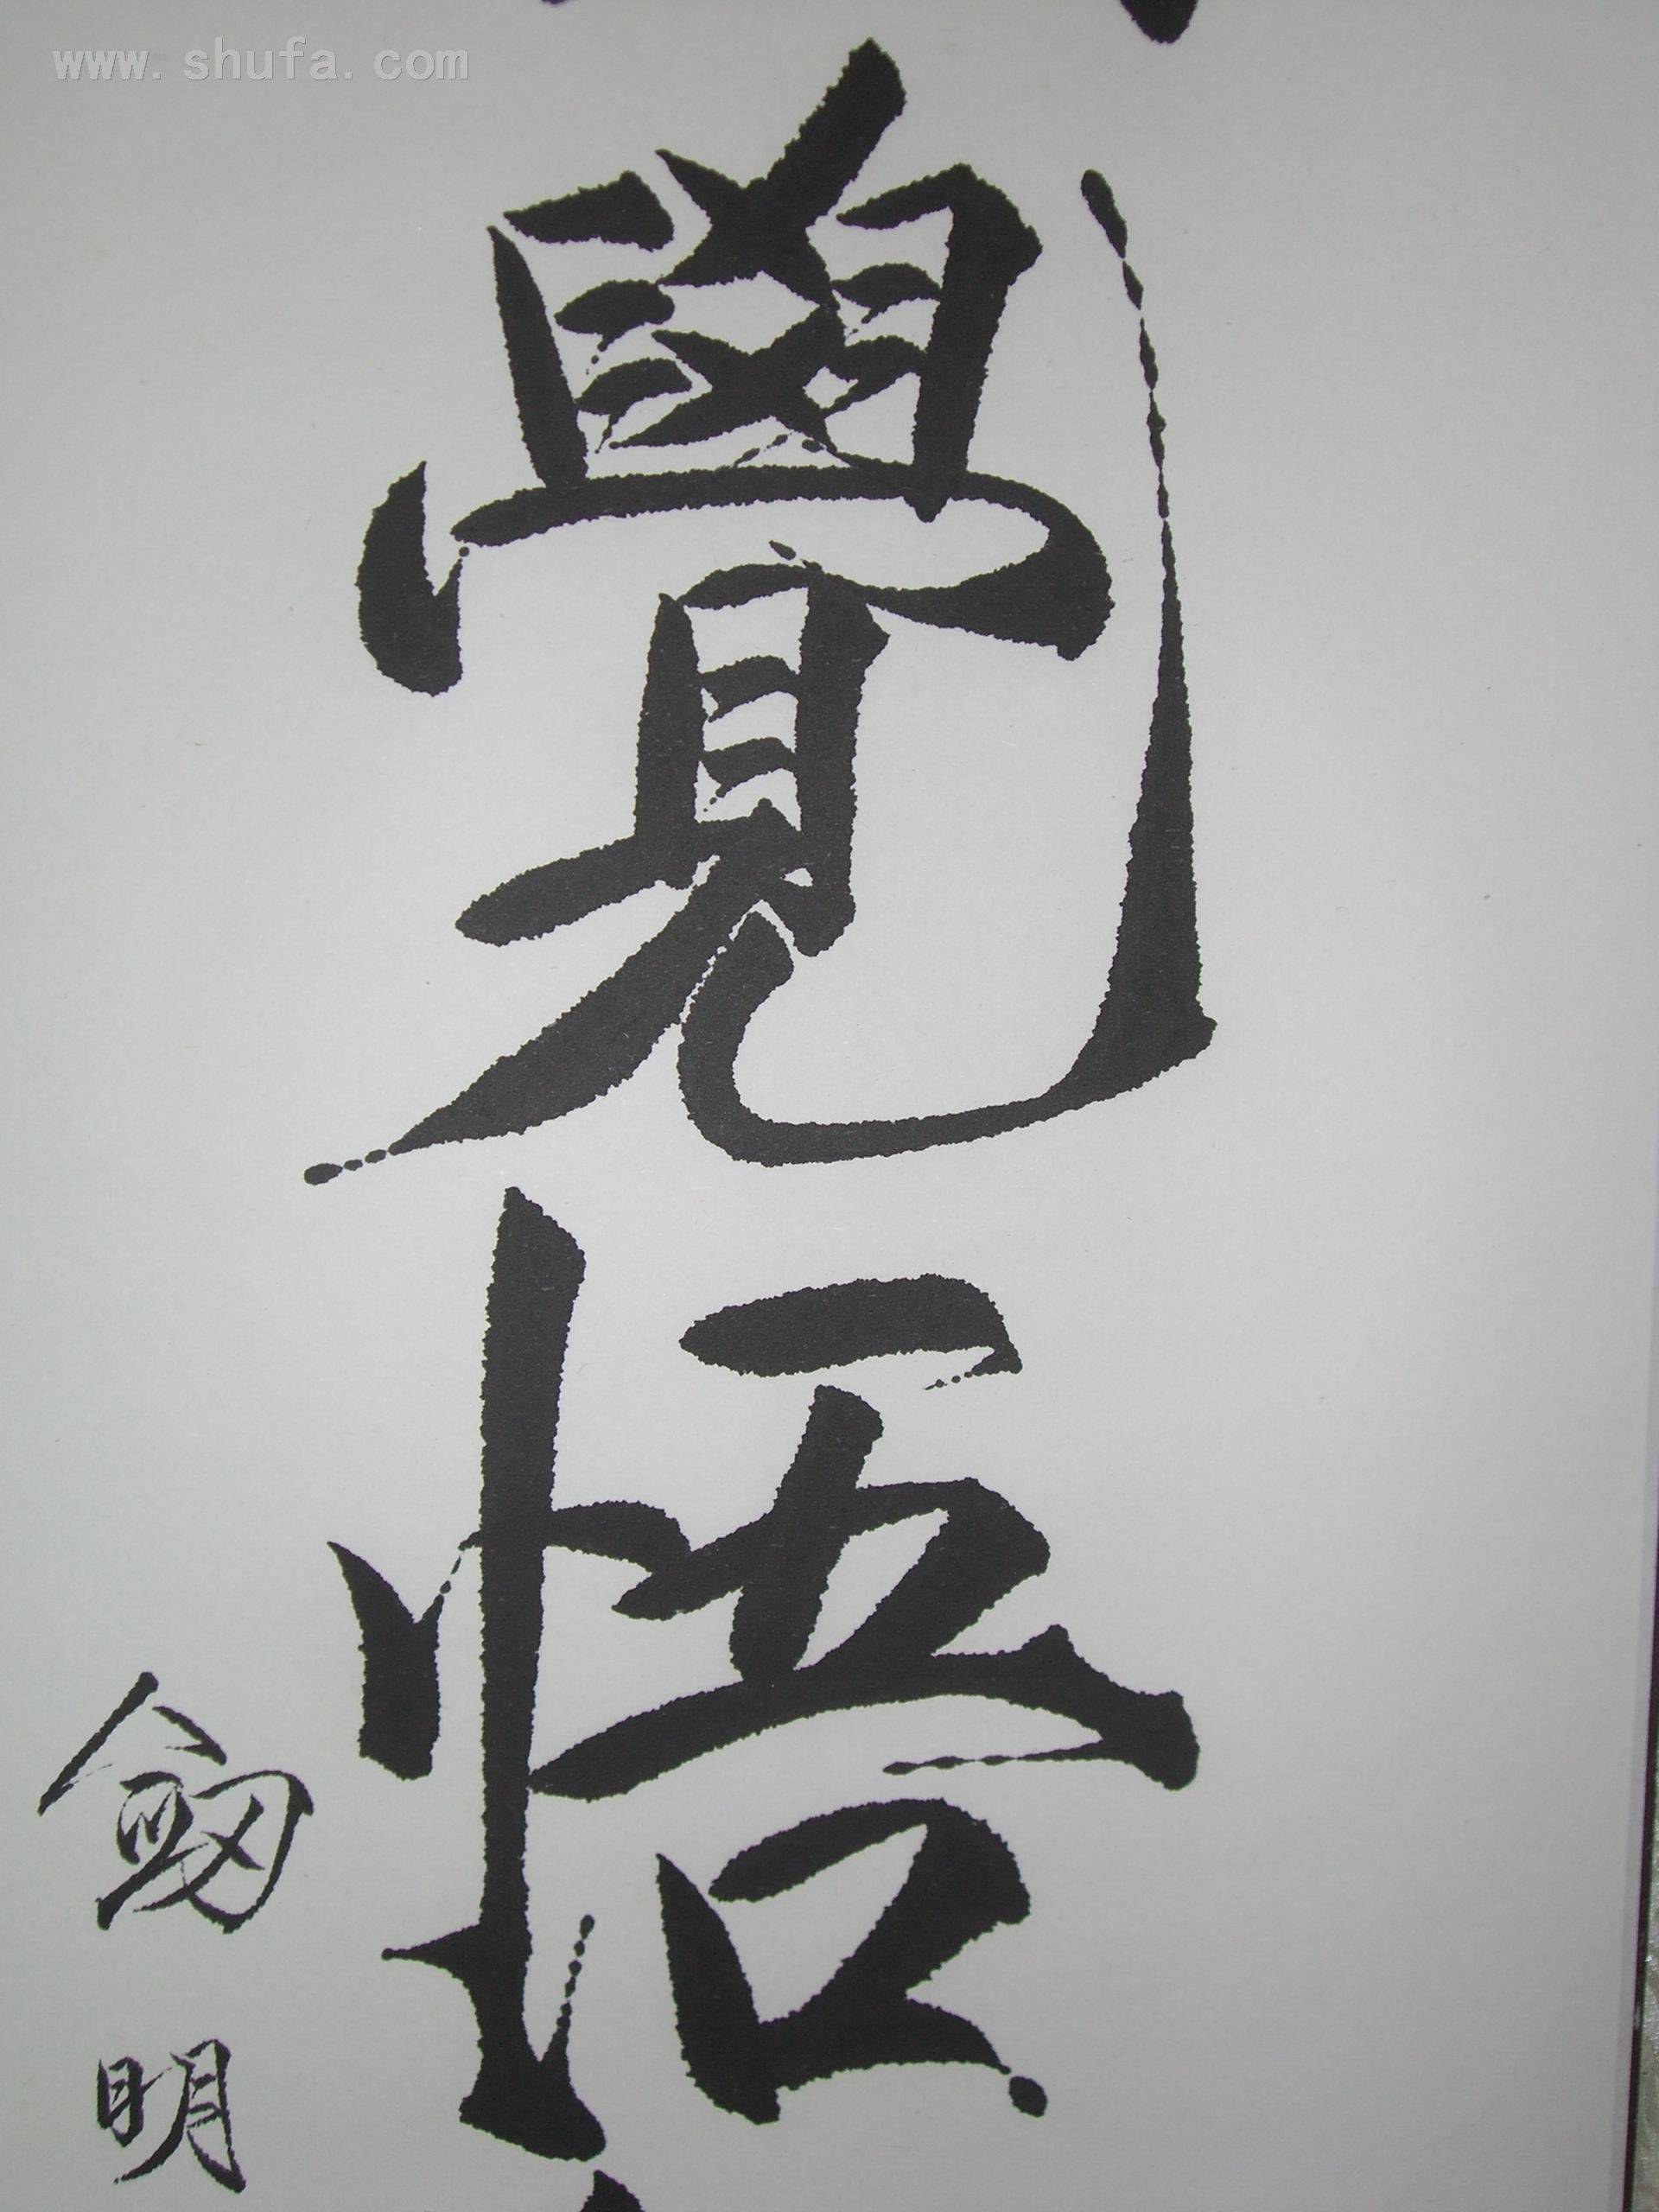 www.shufa.com
覺悟
劔明